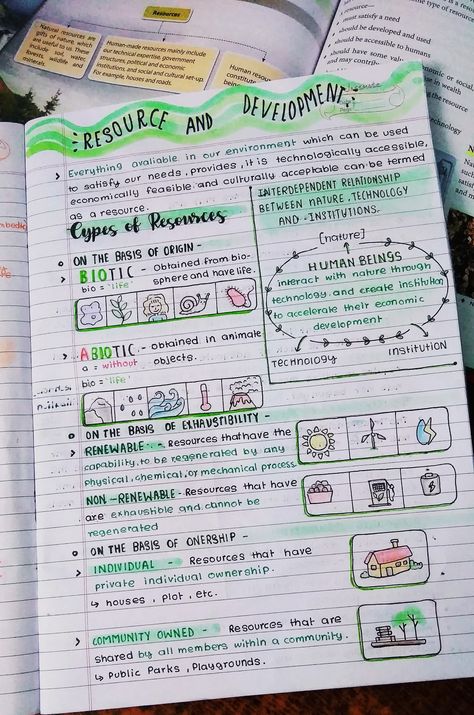 Resources
Natural resources are
gifts of nature, which
are useful to us. These
include soil, water,
minerals, wildlife, etc.
Human-made resources mainly include
our technical expertise, government
structures, political and economic
institutions, and social and cultural set-up.
For example, houses and roads.
Human resources
constitute
resource—
must satisfy a need
should be developed and used
should be accessible to humans
should have some
and may
RESOURCE AND DEVELOPMENT
> Everything avaliable in our environment which can be used
to satisfy our needs, provides, it is technologically accessible,
economically feasible and culturally acceptable can be termed
as a resource.
Types of Resources
ON THE BASIS OF ORIGIN -
> BIOTIC - Obtained from bio-
bio = 'life' sphere and have life.
> ABIOTIC - obtained in animate
a = without objects.
bio = 'life'
INTERDEPENDENT RELATIONSHIP
BETWEEN NATURE, TECHNOLOGY
AND INSTITUTIONS.
[nature]
HUMAN BEINGS
interact with nature through
technology and create institution
to accelerate their economic
development
Technology institution
ON THE BASIS OF EXHAUSTIBILITY -
> RENEWABLE - Resources that have the
capability to be regenerated by any
physical, chemical, or mechanical process
NON-RENEWABLE - Resources that have
are exhaustible and cannot be
regenerated
ON THE BASIS OF ONERSHIP -
> INDIVIDUAL - Resources that have
private individual ownership.
↳ houses, Plot, etc.
> COMMUNITY OWNED - Resources that are
shared by all members within a community.
↳ Public Parks, Playgrounds.